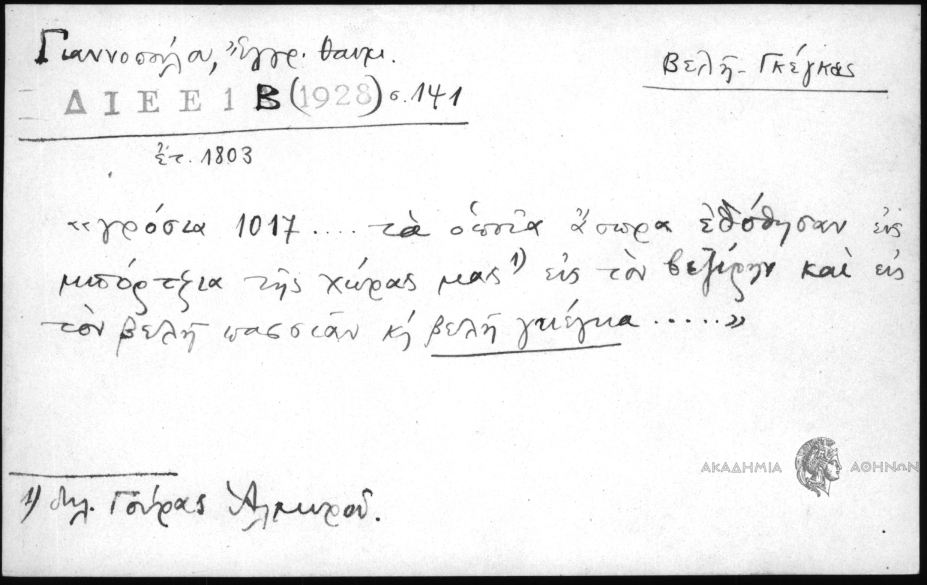 Γιαννοπούλου, Ἔγγρ. θαυμ.
Βελῆ-Γκέγκας
ΔΙΕΕ 1 Β (1928) σ. 141
ἔτ. 1803
«γρόσια 1017 .... τὰ ὁποῖα ἄσπρα ἐδόθησαν εἰς
μπόρτζια τῆς χώρας μας ¹⁾ εἰς τὸν βεζίρην καὶ εἰς
τὸν βελῆ πασσιᾶν κὴ βελῆ γκέγκα .....»
ΑΚΑΔΗΜΙΑ ΑΘΗΝΩΝ
1) δηλ. Γούρας Ἁλμυροῦ.